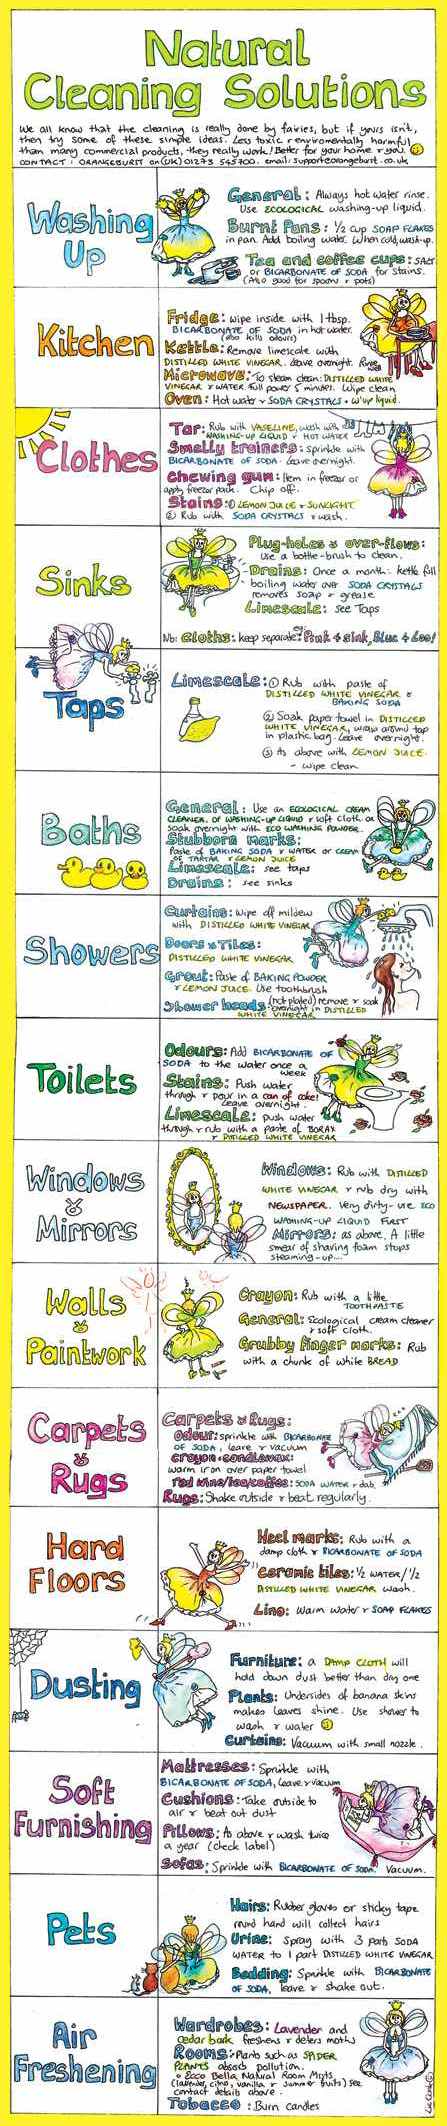 Natural
Cleaning Solutions
We all know that the cleaning is really done by fairies, but if yours isn't,
then try some of these simple ideas. Less toxic & enviromentally harmful
than many commercial products, they really work! Better for your home & you.
CONTACT: ORANGEBURST on (UK) 01273 545700. email: support@orangeburst.co.uk
Washing
Up
General: Always hot water rinse.
Use ECOLOGICAL washing-up liquid.
Burnt Pans: 1/2 cup SOAP FLAKES
in pan. Add boiling water. When cold, wash-up.
Tea and coffee cups: SALT
or BICARBONATE OF SODA for stains.
(Also good for spoons & pots)
Kitchen
Fridge: wipe inside with 1 tbsp.
BICARBONATE OF SODA in hot water.
(also kills odours)
Kettle: Remove limescale with
DISTILLED WHITE VINEGAR. Leave overnight. Rinse well
Microwave: To steam clean: DISTILLED WHITE
VINEGAR & WATER. Full power 5 minutes. Wipe clean.
Oven: Hot water & SODA CRYSTALS + w'up liquid.
Clothes
Tar: Rub with VASELINE, wash with
WASHING-UP LIQUID & HOT WATER
Smelly trainers: sprinkle with
BICARBONATE OF SODA. Leave overnight.
Chewing gum: Item in freezer or
apply freezer pack. Chip off.
Stains: ① LEMON JUICE & SUNLIGHT
② Rub with SODA CRYSTALS & wash.
Sinks
Plug-holes & over-flows:
Use a bottle-brush to clean.
Drains: Once a month: kettle full
boiling water over SODA CRYSTALS
removes soap & grease
Limescale: see Taps
Nb: Cloths: keep separate: Pink 4 sink, Blue 4 Loo!
Taps
Limescale: ① Rub with paste of
DISTILLED WHITE VINEGAR &
BAKING SODA
② Soak paper towel in DISTILLED
WHITE VINEGAR, wrap around tap
in plastic bag. Leave overnight.
③ As above with LEMON JUICE
- wipe clean
Baths
General: Use an ECOLOGICAL CREAM
CLEANER, or WASHING-UP LIQUID & soft cloth or
soak overnight with ECO WASHING POWDER.
Stubborn marks:
Paste of BAKING SODA & WATER or CREAM
OF TARTAR & LEMON JUICE
Limescale: see taps
Drains: see sinks
Showers
Curtains: wipe off mildew
with DISTILLED WHITE VINEGAR
Doors & Tiles:
DISTILLED WHITE VINEGAR
Grout: Paste of BAKING POWDER
& LEMON JUICE. Use toothbrush
Shower heads: (not plated) remove & soak
overnight in DISTILLED
WHITE VINEGAR
Toilets
Odours: Add BICARBONATE OF
SODA to the water once a
week
Stains: Push water
through & pour in a can of coke!
Leave overnight.
Limescale: push water
through & rub with a paste of BORAX
& DISTILLED WHITE VINEGAR
Windows
&
Mirrors
Windows: Rub with DISTILLED
WHITE VINEGAR & rub dry with
NEWSPAPER. Very dirty - use ECO
WASHING-UP LIQUID FIRST
Mirrors: as above. A little
smear of shaving foam stops
steaming-up...
Walls
&
Paintwork
Crayon: Rub with a little
TOOTHPASTE
General: Ecological cream cleaner
& soft cloth.
Grubby finger marks: Rub
with a chunk of white BREAD
Carpets
&
Rugs
Carpets & Rugs:
Odour: sprinkle with BICARBONATE
OF SODA, leave & vacuum
Crayon + candlewax:
warm iron over paper towel
Red wine/tea/coffee: SODA WATER & dab.
Rugs: Shake outside & beat regularly.
Hard
Floors
Heel marks: Rub with a
damp cloth & BICARBONATE OF SODA
Ceramic tiles: 1/2 WATER / 1/2
DISTILLED WHITE VINEGAR wash.
Lino: Warm water & SOAP FLAKES
Dusting
Furniture: a DAMP CLOTH will
hold down dust better than dry one
Plants: Undersides of banana skins
makes leaves shine. Use shower to
wash & water
Curtains: Vacuum with small nozzle.
Soft
Furnishing
Mattresses: Sprinkle with
BICARBONATE OF SODA, leave & vacuum
Cushions: Take outside to
air & beat out dust
Pillows: As above & wash twice
a year (check label)
Sofas: Sprinkle with BICARBONATE OF SODA. Vacuum.
Pets
Hairs: Rubber gloves or sticky tape
round hand will collect hairs
Urine: Spray with 3 parts SODA
WATER to 1 part DISTILLED WHITE VINEGAR
Bedding: Sprinkle with BICARBONATE
OF SODA, leave & shake out.
Air
Freshening
Wardrobes: Lavender and
cedar bark freshens & deters moths
Rooms: Plants such as SPIDER
PLANTS absorb pollution.
Ecco Bella Natural Room Mists
(lavender, citrus, vanilla & summer fruits) see
contact details above.
Tobacco: Burn candles